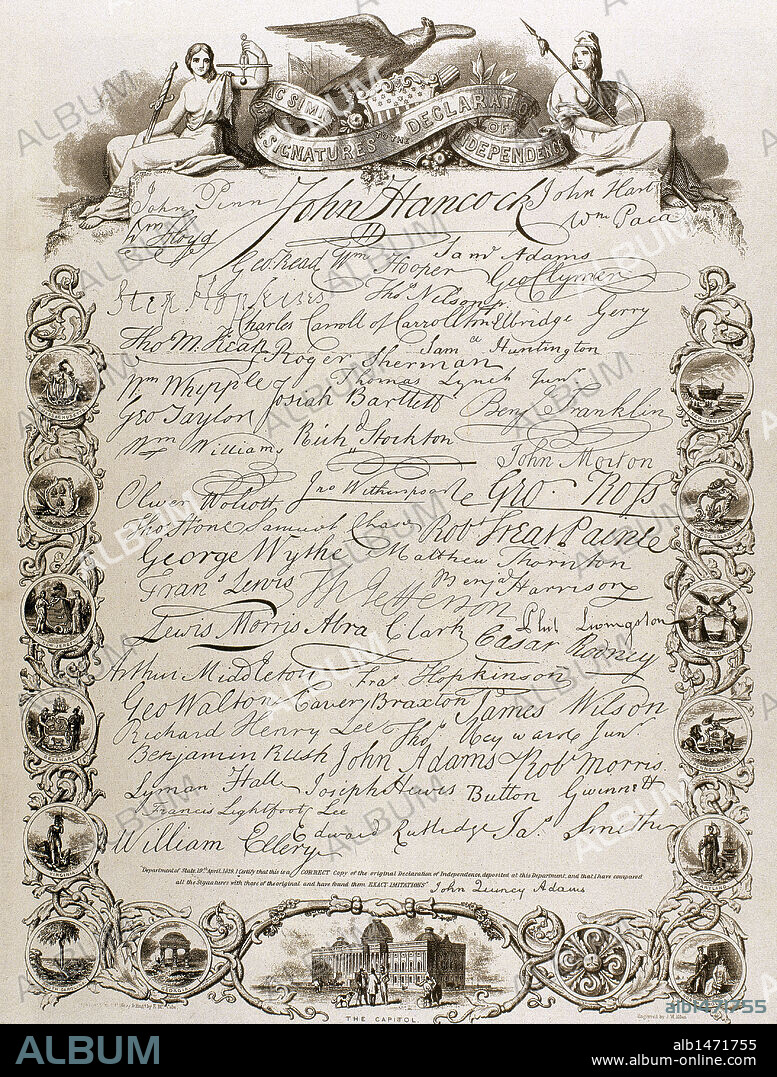 FAC SIMILE
SIGNATURES TO THE DECLARATION
OF INDEPENDENCE
John Penn John Hancock John Hart
Wm Floyd Wm Paca
Geo. Read Wm Hooper Saml Adams
Geo Clymer
Step. Hopkins Thos Nelson jr.
Charles Carroll of Carrollton Elbridge Gerry
Tho M.Kean Roger Sherman Saml Huntington
Wm Whipple Josiah Bartlett Thomas Lynch Junr
Geo Taylor Benj Franklin
Wm Williams Richd Stockton
John Morton
Oliver Wolcott Jno Witherspoon Geo. Ross
Thos Stone Samuel Chase Robt Treat Paine
George Wythe Matthew Thornton
Frans Lewis Th Jefferson Benja Harrison
Lewis Morris Abra Clark Phil Livingston
Cæsar Rodney
Arthur Middleton Fras Hopkinson
Geo Walton Carter Braxton James Wilson
Richard Henry Lee Thos Heyward Junr.
Benjamin Rush John Adams Robt Morris
Lyman Hall Joseph Hewes Button Gwinnett
Francis Lightfoot Lee
William Ellery Edward Rutledge Jas Smith
"Department of State, 19th April, 1819. I Certify that this is a CORRECT Copy of the original Declaration of Independence, deposited at this Department, and that I have compared
all the Signatures with those of the original and have found them EXACT IMITATIONS" John Quincy Adams
DELAWARE
VIRGINIA
NEW YORK
MARYLAND
THE CAPITOL.
ALBUM
alb1471755
ALBUM
alb1471755
album-online.com